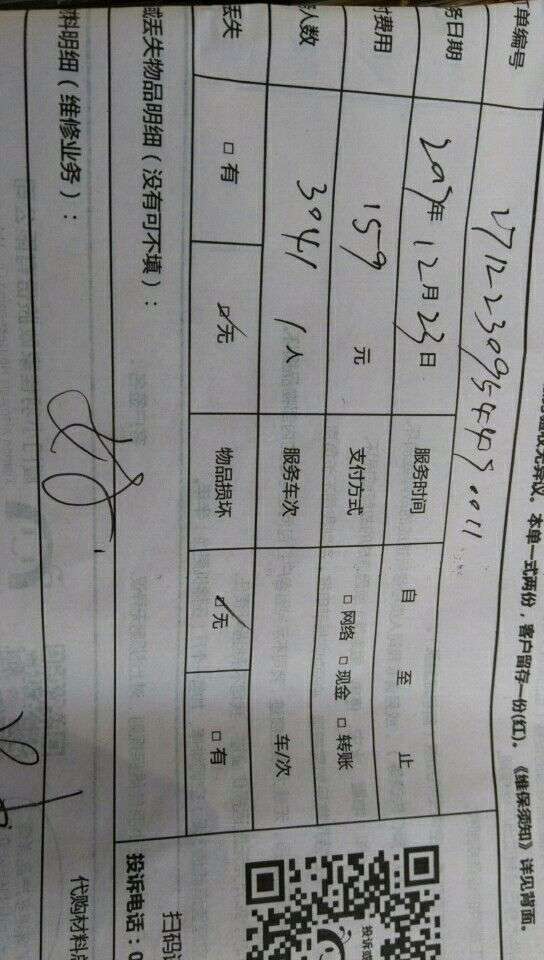 本单一式两份，客户留存一份(红)。《维保须知》详见背面。
单编号
务日期 年 12月23日 服务时间 自 至 止
费用 159 元 支付方式 □网络 □现金 □转账
人数 3041 1人 服务车次 车/次
丢失 □有 ☑无 物品损坏 ☑无 □有
或丢失物品明细（没有可不填）：
料明细（维修业务）：
投诉
扫码
投诉电话：0
代购材料